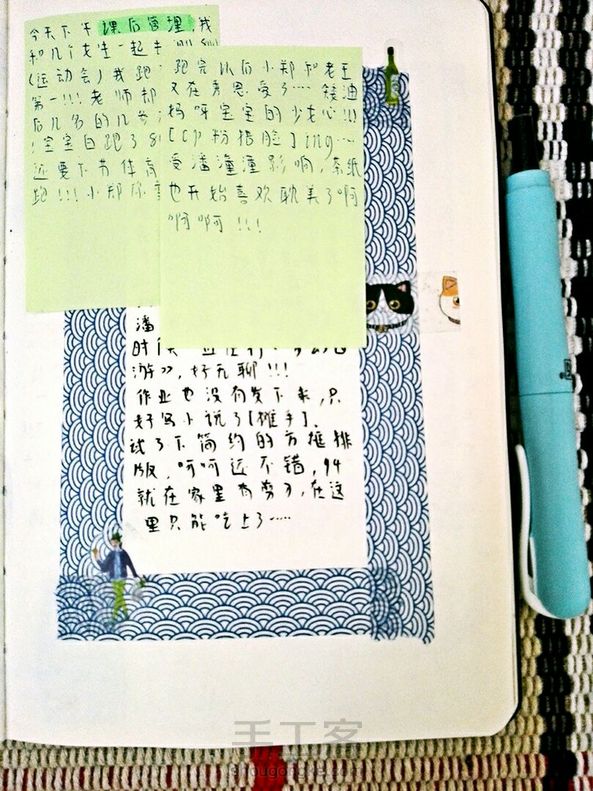 今天下午课后管理,我
和几个女生一起
(运动会)我跑
第一!!!老师却
后几名的几
!宝宝白跑了8
还要下节体育
跑!!!小郑你
跑完以后小郑和老王
又在秀恩爱了……辣油
妈呀宝宝的少女心!!!
[cp粉捂脸]ing……
受潘潼潼影响,本纸
也开始喜欢耽美了啊
啊啊!!!
潘
时候
游》,好无聊!!!
作业也没有发下来,只
好写小说了[摊手].
试了下简约的方框排
版,呵呵还不错,
就在家里
里只能吃土了……
手工客
shougongke.com